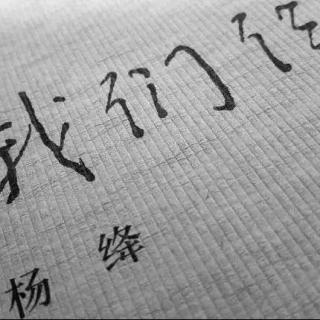 我们
杨绛